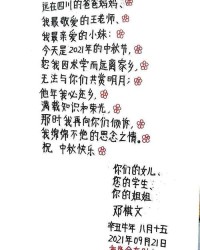 远在四川的爸爸妈妈、
我最敬爱的王老师、
我最亲爱的小妹：
今天是2021年的中秋节，
赶我因求学而远离家乡，
无法与你们共赏明月；
他年我必还乡，
满载知识和荣光，
那时我再向你们倾诉，
我绵绵不绝的思念之情。
祝 中秋快乐
你们的女儿、
您的学生、
你的姐姐
邓棋文
辛丑牛年 八月十五
2021年09月21日